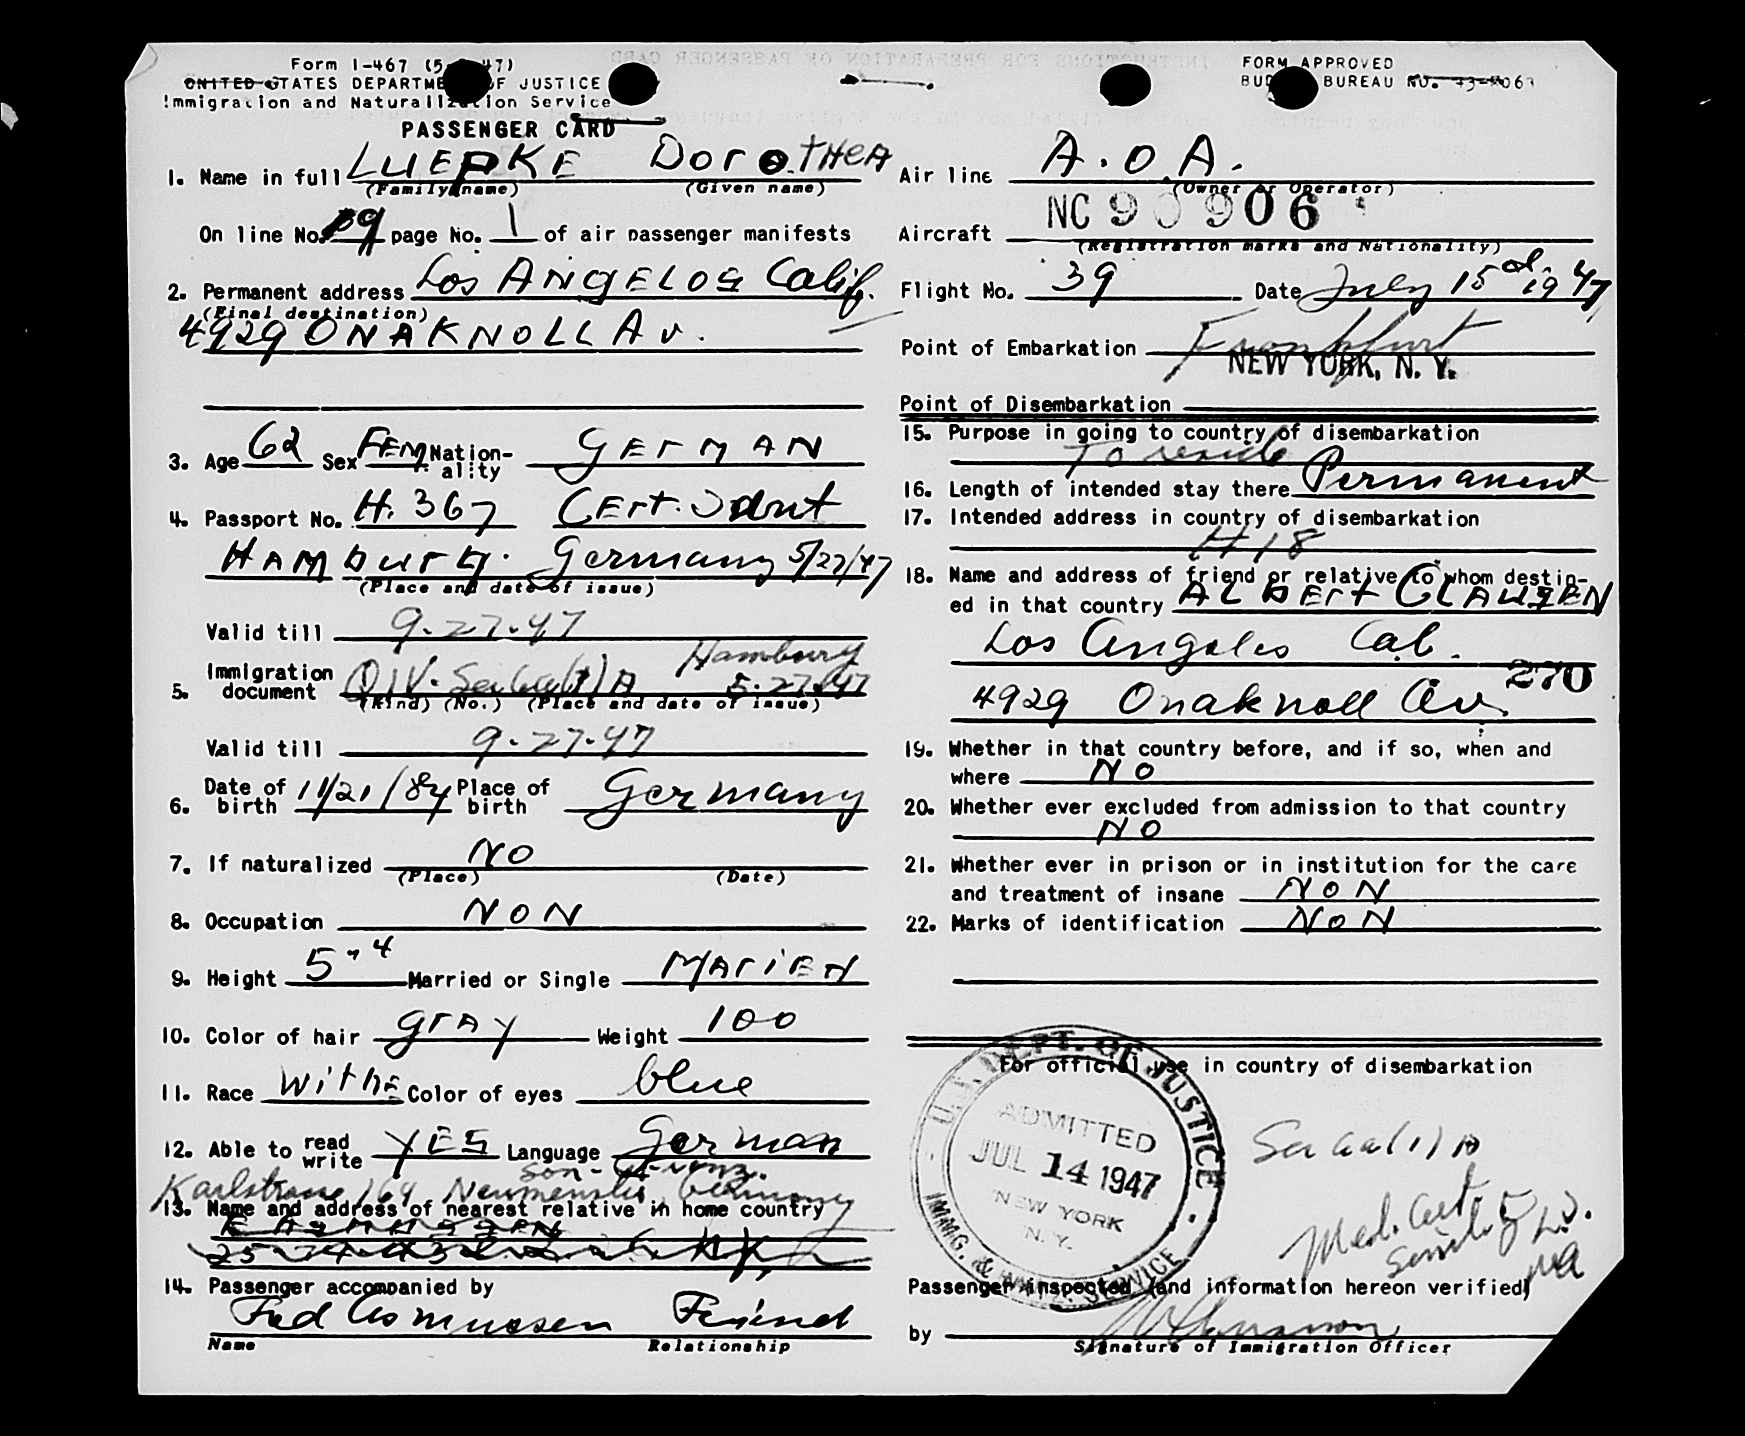 Form I-467 (5- -47)
UNITED STATES DEPARTMENT OF JUSTICE
Immigration and Naturalization Service
PASSENGER CARD
1. Name in full LUEPKE DorotHeA
(Family name) (Given name)
On line No. 09 page No. 1 of air passenger manifests
2. Permanent address Los ANgELOS Calif.
(Final destination)
4929 ONAKNOLL Av.
3. Age 62 Sex FEM. Nation-ality GErMAN
4. Passport No. H. 367 CErt. Idnt
HAMburg. Germany 5/27/47
(Place and date of issue)
Valid till 9-27-47
5. Immigration document QIV. Hamburg 5-27-47
(Kind) (No.) (Place and date of issue)
Valid till 9-27-47
6. Date of birth 11/21/84 Place of birth Germany
7. If naturalized NO
(Place) (Date)
8. Occupation NON
9. Height 5"4 Married or Single MAriEd
10. Color of hair grAy Weight 100
11. Race withe Color of eyes blue
12. Able to read write YES Language German
son-
Karlstrasse 164 Neumenster, Germany
13. Name and address of nearest relative in home country
14. Passenger accompanied by
Fred Asmussen Friend
Name Relationship
FORM APPROVED
BUDGET BUREAU NO. 43-R063
Air line A.O.A.
(Owner or Operator)
Aircraft NC 90906
(Registration marks and Nationality)
Flight No. 39 Date July 15d. 1947
Point of Embarkation Frankfurt
NEW YORK, N. Y.
Point of Disembarkation
15. Purpose in going to country of disembarkation
To reside
16. Length of intended stay there Permanent
17. Intended address in country of disembarkation
# 18
18. Name and address of friend or relative to whom destin-
ed in that country ALbErt CLAUSEN
Los Angeles Cal.
270
4929 Onaknoll Av.
19. Whether in that country before, and if so, when and
where NO
20. Whether ever excluded from admission to that country
NO
21. Whether ever in prison or in institution for the care
and treatment of insane NON
22. Marks of identification NON
For official use in country of disembarkation
U.S. DEPT. OF JUSTICE
ADMITTED
JUL 14 1947
NEW YORK
N.Y.
IMMG. & NATZ. SERVICE
Med. Cert
Passenger inspected (and information hereon verified)
by
Signature of Immigration Officer